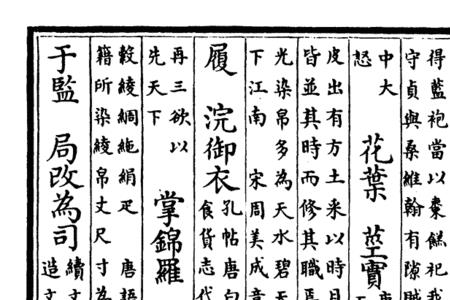 得藍袍當以棗餻祀我
守貞與桑維翰有隙賊
中大
怒
花葉 莖實
皮出有方土采以時日
皆並其時而修其職焉
光染帛多為天水碧天
下江南 宋周美成
履 浣御衣
孔帖唐白
食貨志代
再三欲以
先天下
掌錦羅
縠綾綢絁絹疋 唐語
籍所染綾帛丈尺寸為
于監 局改為司
續文
造文